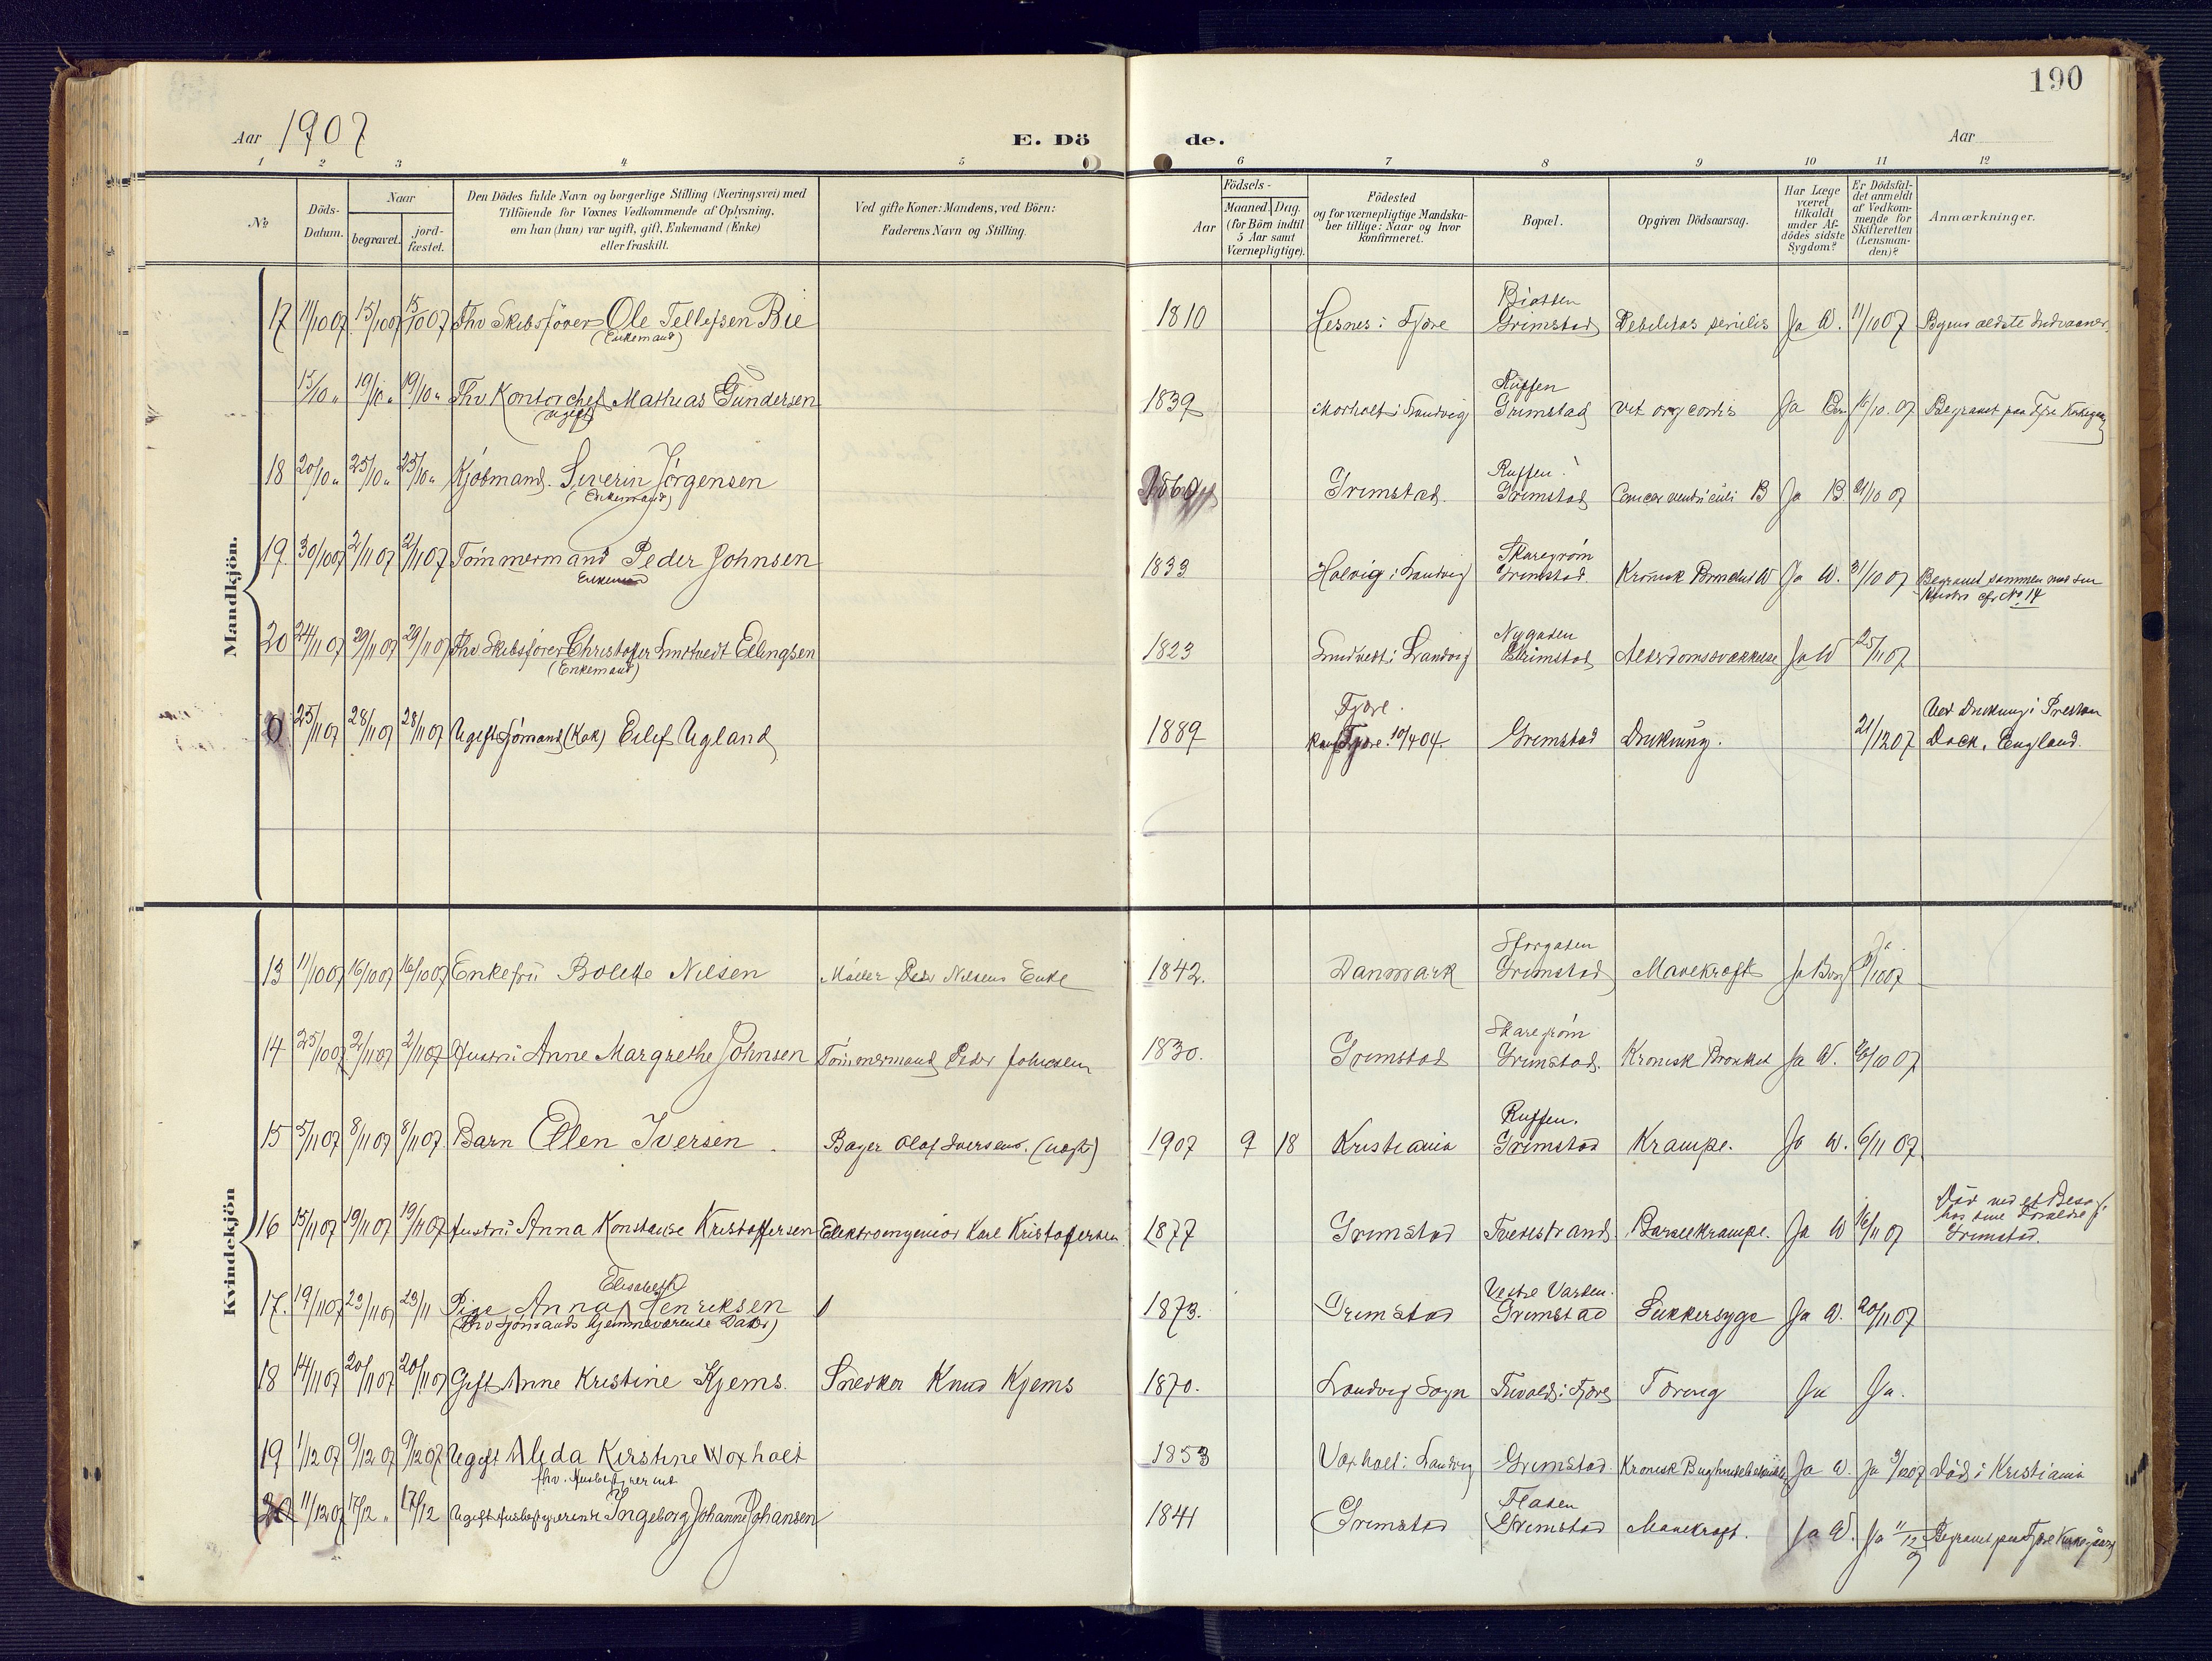 190
Aar 1907
E. Dö
de.
Aar
1 2 3 4 5 6 7 8 9 10 11 12
No
Döds-
Datum.
Naar
begravet.
jord-
fæstet.
Den Dödes fulde Navn og borgerlige Stilling (Næringsvei) med
Tilföiende for Voxnes Vedkommende af Oplysning,
om han (hun) var ugift, gift, Enkemand (Enke)
eller fraskilt.
Ved gifte Koner: Mandens, ved Börn:
Faderens Navn og Stilling.
Födsels-
Aar
Maaned. Dag.
(for Börn indtil
5 Aar samt
Værnepligtige).
Födested
og for værnepligtige Mandska-
ber tillige: Naar og hvor
konfirmeret.
Bopæl.
Opgiven Dödsaarsag.
Har Læge
været
tilkaldt
under Af-
dödes sidste
Sygdom?
Er Dödsfal-
det anmeldt
af Vedkom-
mende for
Skifteretten
(Lensman-
den)?
Anmærkninger.
Mandkjön.
Biotten
17 11/10 07 15/10 07 15/10 07 Fhv Skibsförer Ole Tellefsen Bie 1810 Hesnes i Fjære Grimstad Debilitas senilis Ja W. 11/10 07 Byens ældste Indvaaner.
(Enkemand)
Ruffen
15/10 " 19/10 " 19/10 " Fhv Kontorchef Mathias Gundersen 1839 Morholt i Landvig Grimstad vit org cordis Ja 16/10 07 Begravet paa Fjære Kirkegaard
(ugift)
Ruffen
18 20/10 " 25/10 " 25/10 " Kjöbmand. Severin Jörgensen Grimstad. Grimstad Cancer ventriculi B Ja B 21/10 07
(Enkemand)
Skaregröm
19. 30/10 07 2/11 07 2/11 07 Tömmermand Peder Johnsen 1833 Landvig Grimstad. Kronisk W Ja W. 31/10 07 Begravet sammen med sin
Enkemand Hustru cfr No 14
Nygaten
20 24/11 07 29/11 07 29/11 07 Fhv Skibsförer Christofer Smstvedt Ellingsen 1823 Landvig Grimstad Alderdomssvækkelse Ja W 25/11 07
(Enkemand)
Fjære. Ved Drukning i Preston
25/11 07 28/11 07 28/11 07 Ugift Sömand (Kok) Eilef Ugland 1889 Konf Fjære 10/4 04. Grimstad Drukning. 21/12 07 Dock, England.
Kvindekjön
Storgaten Ja.
13 11/10 07 16/10 07 16/10 07 Enkefru Bolette Nilsen Möller Peder Nilsens Enke 1842. Danmark Grimstad Mavekræft Ja
Skaregröm
14 25/10 07 2/11 07 2/11 07 Hustru Anne Margrethe Johnsen Tömmermand Peder Johnsen 1830. Grimstad Grimstad. Kronisk Bronkit Ja W. 26/10 07
Ruffen.
15 5/11 07 8/11 07 8/11 07. Barn Ellen Iversen. Bager Olaf Iversens. 1907 9 18 Kristiania Grimstad Krampe. Ja W. 6/11 07
Död ved et Besög
hos sine Forældre i
16 15/11 07 19/11 07 19/11 07 Hustru Anna Konstanse Kristoffersen Elektroingeniör Karl Kristoffersen 1877 Grimstad Tvedestrand Barselkrampe. Ja W 16/11 07 Grimstad.
Elisabeth Vestre Varden.
17. 19/11 07 23/11 07 23/11 Pige Anna Henriksen 1873. Grimstad Grimstad Sukkersyge Ja W. 20/11 07
(Fhv Sjömands hjemmeværende Datter)
18 14/11 07 20/11 07 20/11 07 Gift Anne Kristine Kjems. Snedker Knud Kjems 1870. Landvig Sogn i Fjære Tæring Ja Ja.
19 1/12 07 9/12 07 9/12 07 Ugift Alida Kirstine Woxholt 1853 Voxholt i Landvig Grimstad. Kronisk Ja W. Ja 3/12 07 Död i Kristiania
fhv. Husbestyrerinde
Flaten
20 11/12 07 17/12 " 17/12 Ugift Husbestyrerinde Ingeborg Johanne Johansen 1841 Grimstad Grimstad Mavekræft. Ja W. Ja 11/12 7 Begravet paa Fjære Kirkegaard